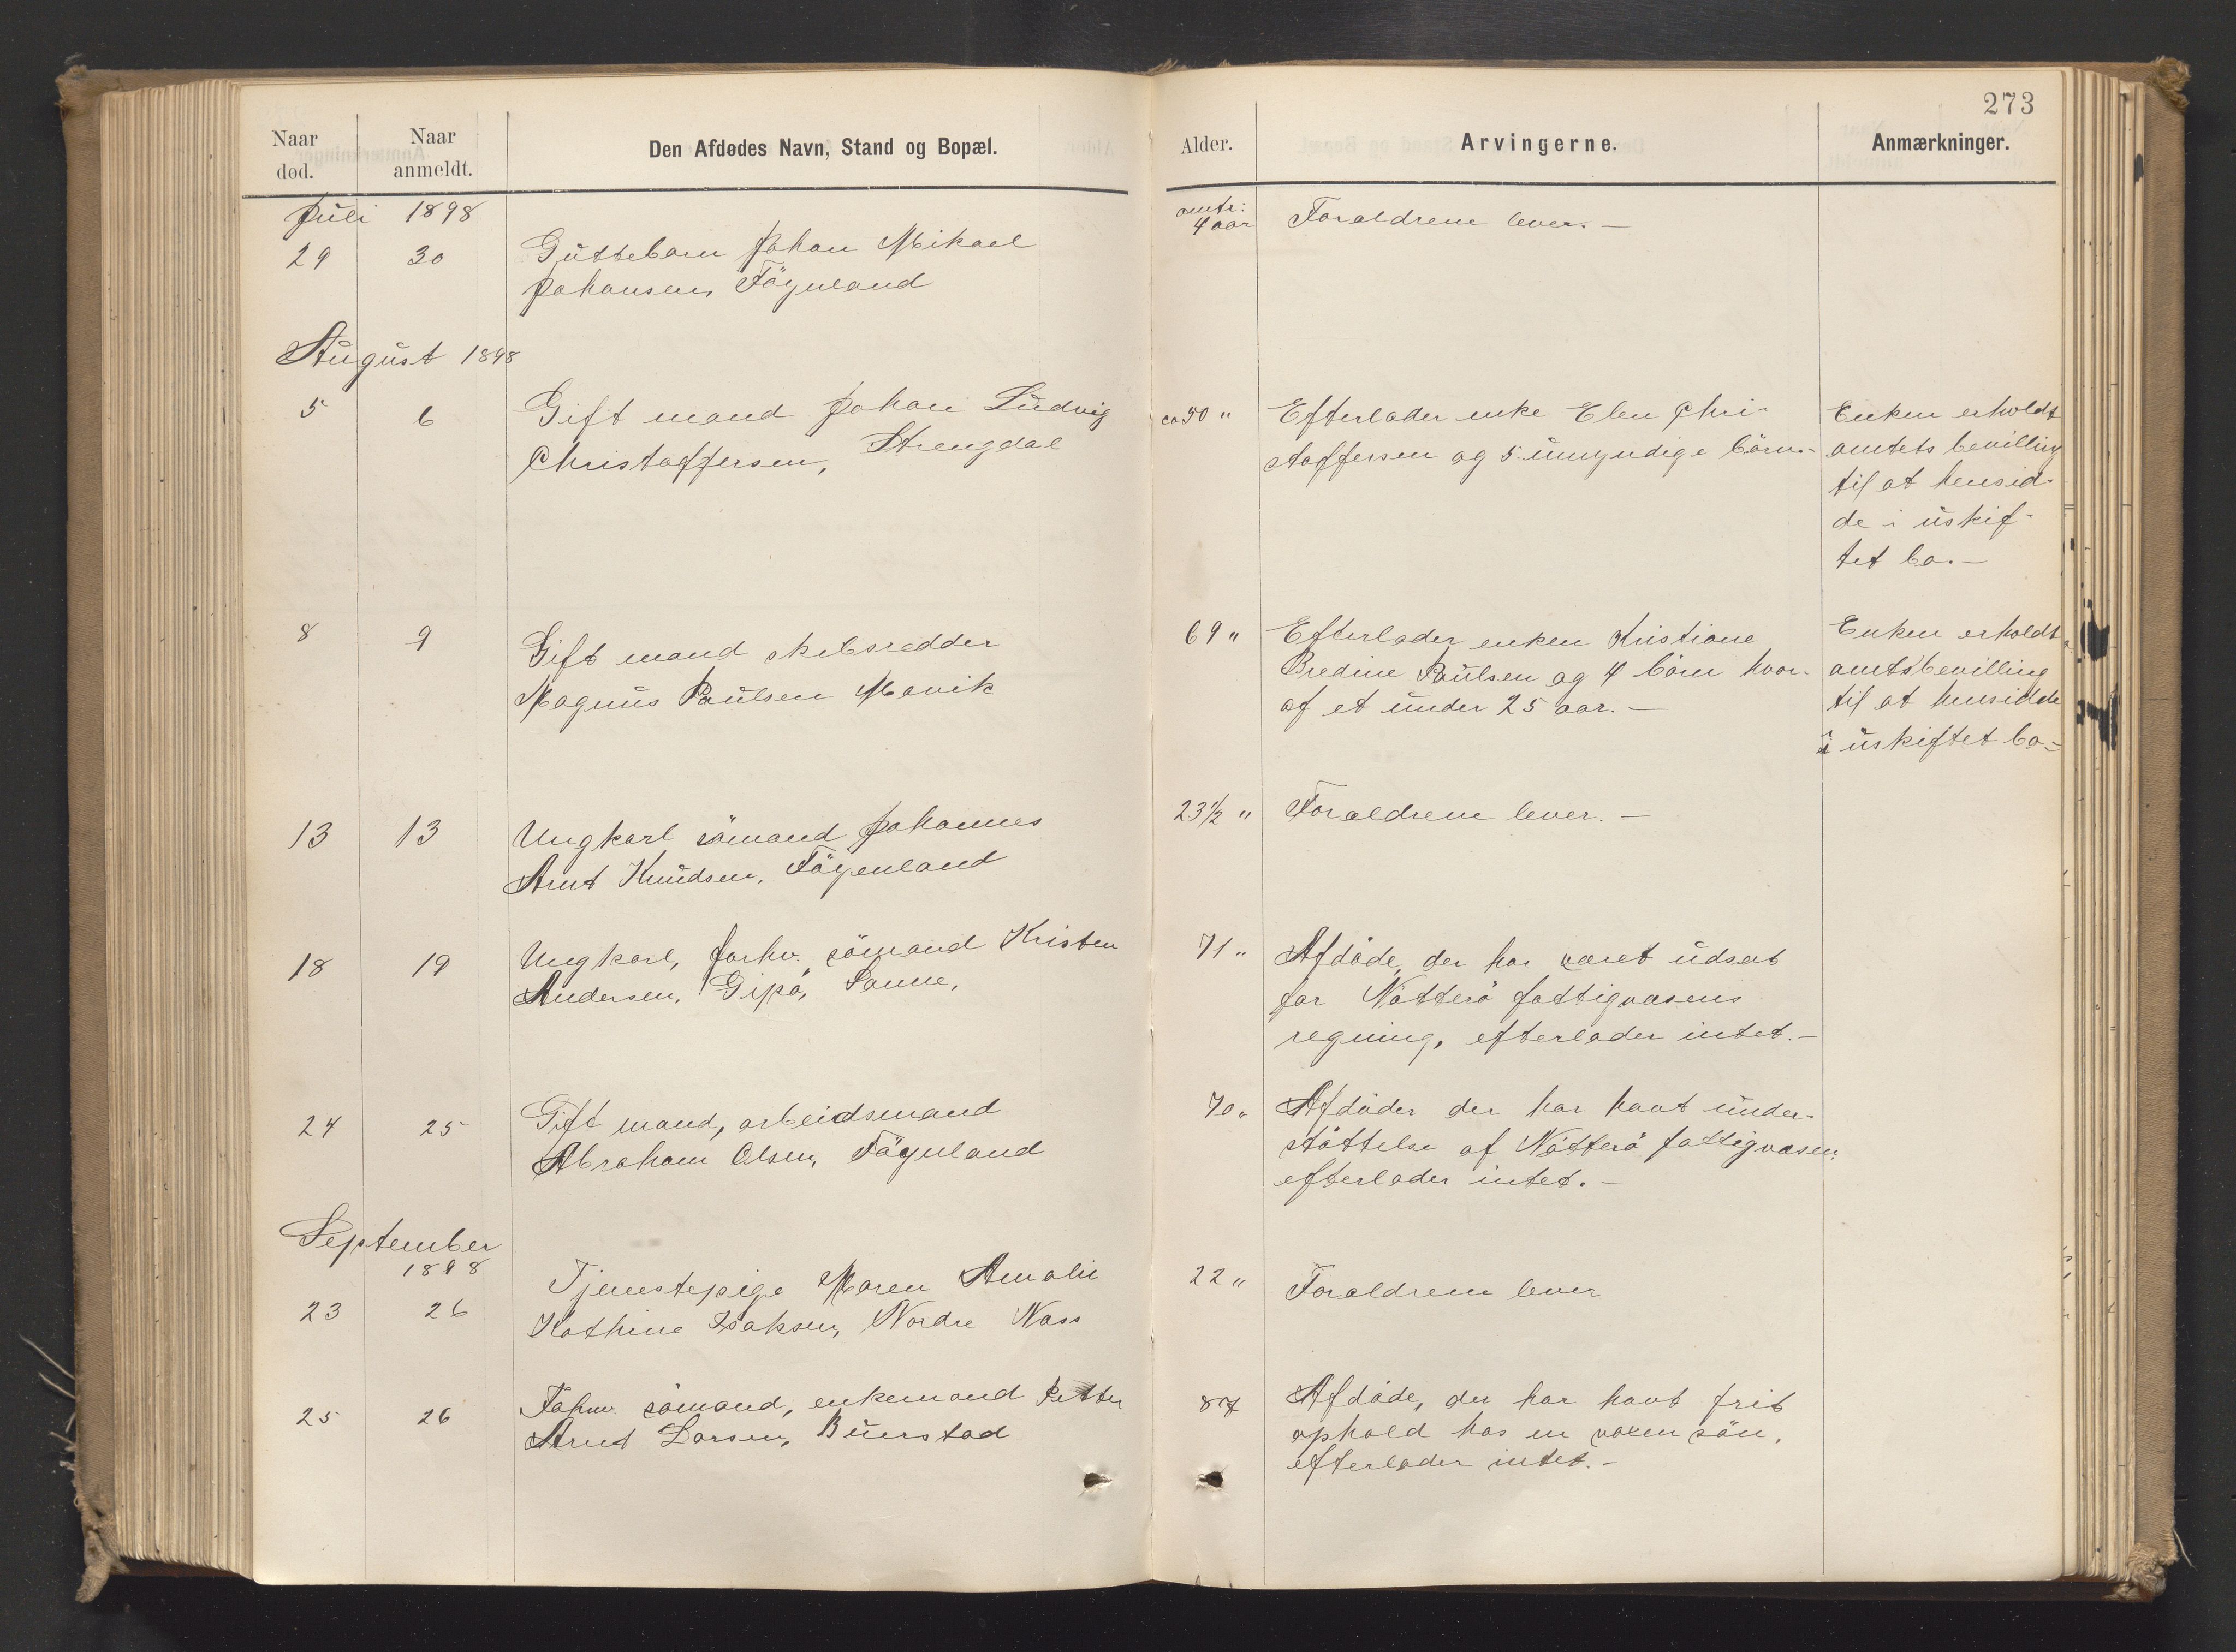 273
Naar død.
Naar anmeldt.
Den Afdødes Navn, Stand og Bopæl.
Alder.
Arvingerne.
Anmærkninger.
Juli 1898
29 30 Guttebarn Johan Mikael
Johansen, Föynland
omtr:
4 aar
Foraldrene lever. —
August 1898
5 6 Gift mand Johan Ludvig
Christoffersen, Strengdal
ca 50 "
Efterlader enke Elen Chri-
stoffersen og 5 umyndige börn. -
Enken erholdt
amtets bevilling
til at hensid-
de i uskif-
tet bo. —
8 9 Gift mand skibsredder
Magnus Paulsen Mavik
69 "
Efterlader enken Kristiane
Bredine Paulsen og 4 börn hvor-
af et under 25 aar. —
Enken erholdt
amtsbevilling
til at hensidde
i uskiftet bo -
13 13 Ungkarl sömand Johannes
Arnt Knudsen, Föyenland
23½ "
Foraldrene lever. —
18 19 Ungkarl, forhv. sömand Kristen
Andersen, Gipö, Sanne,
71 "
Afdöde, der har varet udsat
for Nötterö fattigvasens
regning, efterlader intet. —
24 25 Gift mand, arbeidsmand
Abraham Olsen, Föynland
70 "
Afdöder der har havt under-
stöttelse af Nötterö fattigvasen
efterlader intet. —
September
1898
23 26 Tjenestepige Maren Amalie
Kathine Isaksen, Nordre Nass
22 "
Foraldrene lever
25 26 sömand, enkemand Petter
Arnt Larsen, Buerstad
87
Afdöde, der har havt frit
ophold hos en voxen sön,
efterlader intet. -